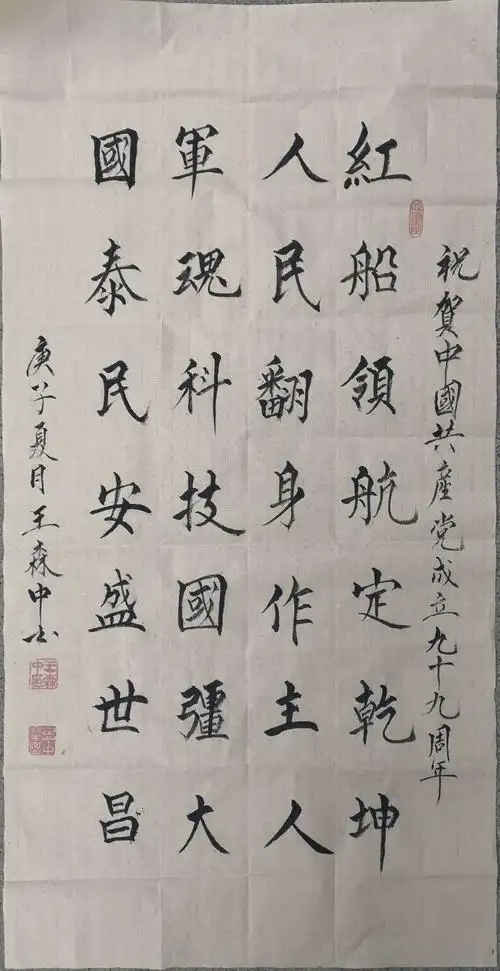 祝賀中國共產党成立九十九周年
紅船領航定乾坤
人民翻身作主人
軍魂科技國疆大
國泰民安盛世昌
庚子夏月王森中书